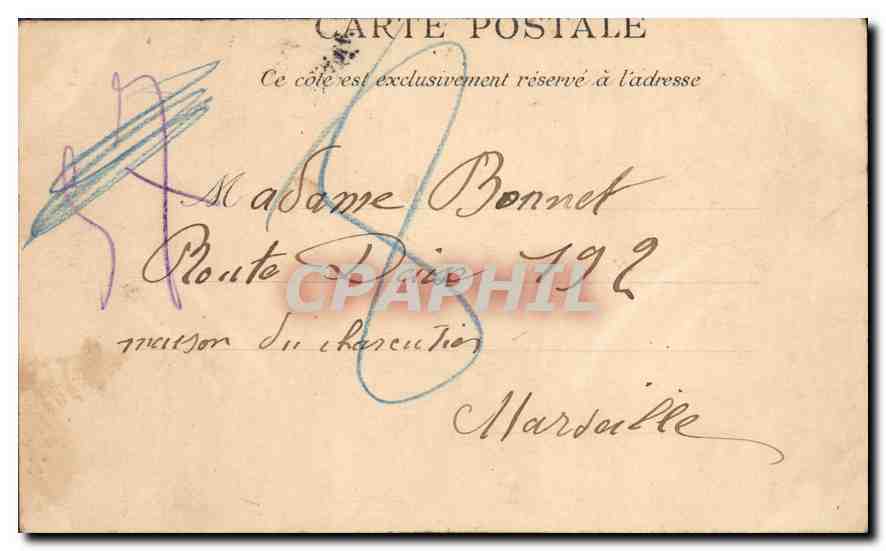 CARTE POSTALE
Ce côté est exclusivement réservé à l'adresse
Madame Bonnet
Route Daix 192
maison du charcutier
Marseille
CPAPHIL
8